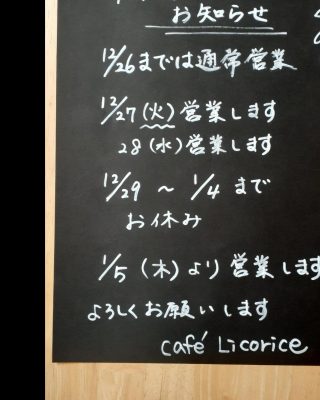 お知らせ
12/26までは通常営業
12/27(火)営業します
28(水)営業します
12/29 〜 1/4 まで
お休み
1/5 (木)より営業します
よろしくお願いします
café Licorice